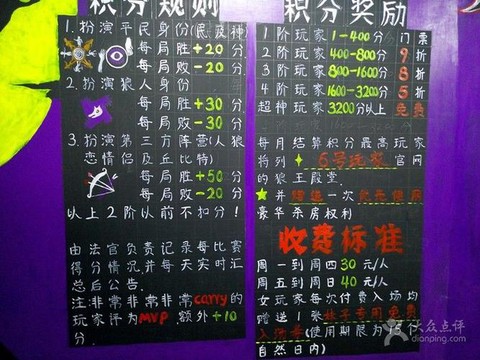 积分规则
1.扮演平民身份(民及神)
每局胜+20分
每局败-20分
2.扮演狼人身份
每局胜+30分
每局败-30分
3.扮演第三方阵营(人狼
恋情侣及丘比特)
每局胜+50分
每局败-20分
以上2阶以前不扣分!
由法官负责记录每比赛
得分情况并每天实时汇
总后公告.
注:非常非常非常carry的
玩家评为MVP.额外+10
分.
积分奖励
1阶玩家1-400分 门票
2阶玩家400-800分 9折
3阶玩家800-1600分 8折
4阶玩家1600-3200分 5折
超神玩家3200分以上 免费
每月结算积分最高玩家
将列★6号玩家官网
的狼王殿堂.
★并赠送一次免费使用
豪华杀房权利
收费标准
周一到周四30元/人
周五到周日40元/人
女玩家每次付费入场均
赠送1张妹子专用免费
入场券(使用期限为15
自然日内)
大众点评
dianping.com